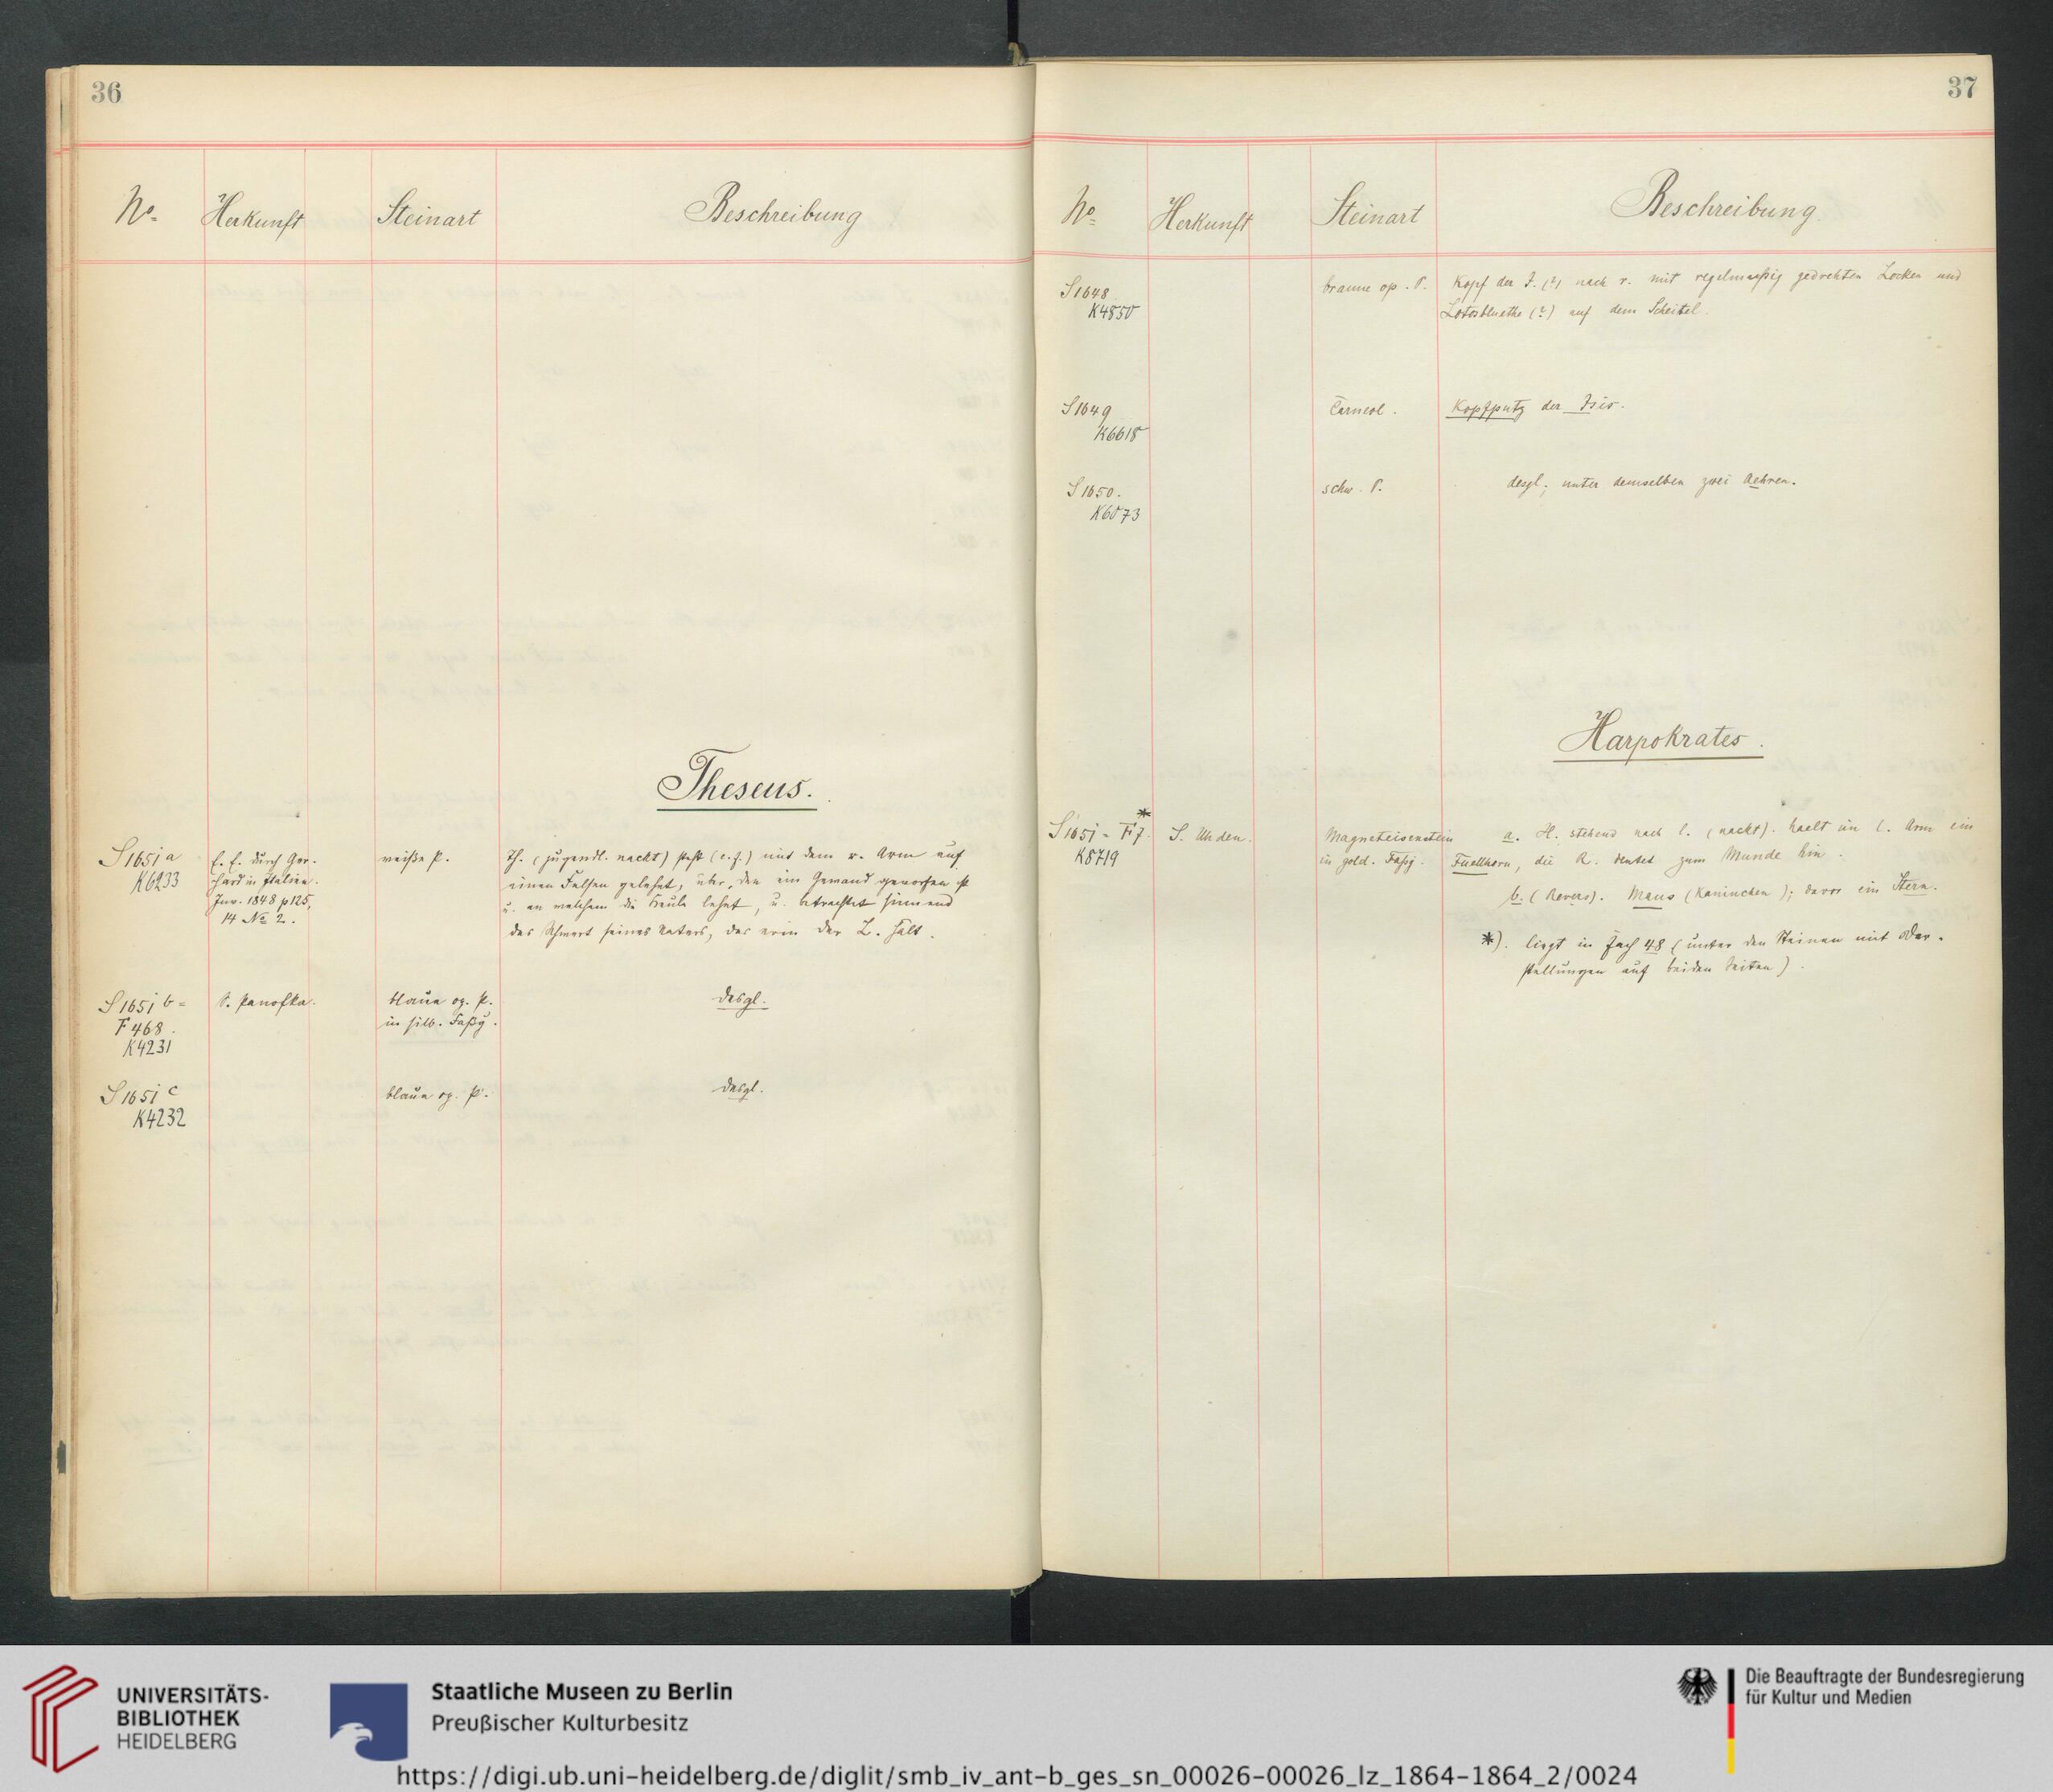 36
No. Herkunft Steinart Beschreibung
Theseus.
S 1651 a
K6233
durch Ger-
hard in Italien.
Inv. 1848 p 125,
14 No 2.
weiße P.
Th. (jugendl. nackt) steht (e. f.) mit dem r. Arm auf
einen Felsen gelehnt, über den ein Gewand geworfen ist
u. an welchem die Keule lehnt, u. betrachtet sinnend
das Schwert seines Vaters, das er in der L. hält.
S 1651 b =
F 468.
K4231
S. Panofka.
blaue op. P.
in silb. Faßg.
desgl.
S 1651 c
K4232
blaue op. P.
desgl.
37
No. Herkunft Steinart Beschreibung.
S 1648
K4850
braune op. P.
Kopf der I. (?) nach r. mit regelmaßig gedrehten Locken und
Lotosbluethe (?) auf dem Scheitel.
S 1649
K6618
Carneol.
Kopfputz der Isis.
S 1650.
K6073
schw. P.
desgl.; unter demselben zwei Aehren.
Harpokrates.
*
K8719
S. Uhden.
Magneteisenstein
in gold. Faßg.
a. H. stehend nach l. (nackt). haelt im l. Arm ein
Fuellhorn, die R. deutet zum Munde hin.
b. (Revers). Maus (Kaninchen); davor ein Stern.
*). liegt in Fach 48 (unter den Steinen mit Dar-
stellungen auf beiden Seiten).
UNIVERSITÄTS-
BIBLIOTHEK
HEIDELBERG
Staatliche Museen zu Berlin
Preußischer Kulturbesitz
Die Beauftragte der Bundesregierung
für Kultur und Medien
https://digi.ub.uni-heidelberg.de/diglit/smb_iv_ant-b_ges_sn_00026-00026_lz_1864-1864_2/0024